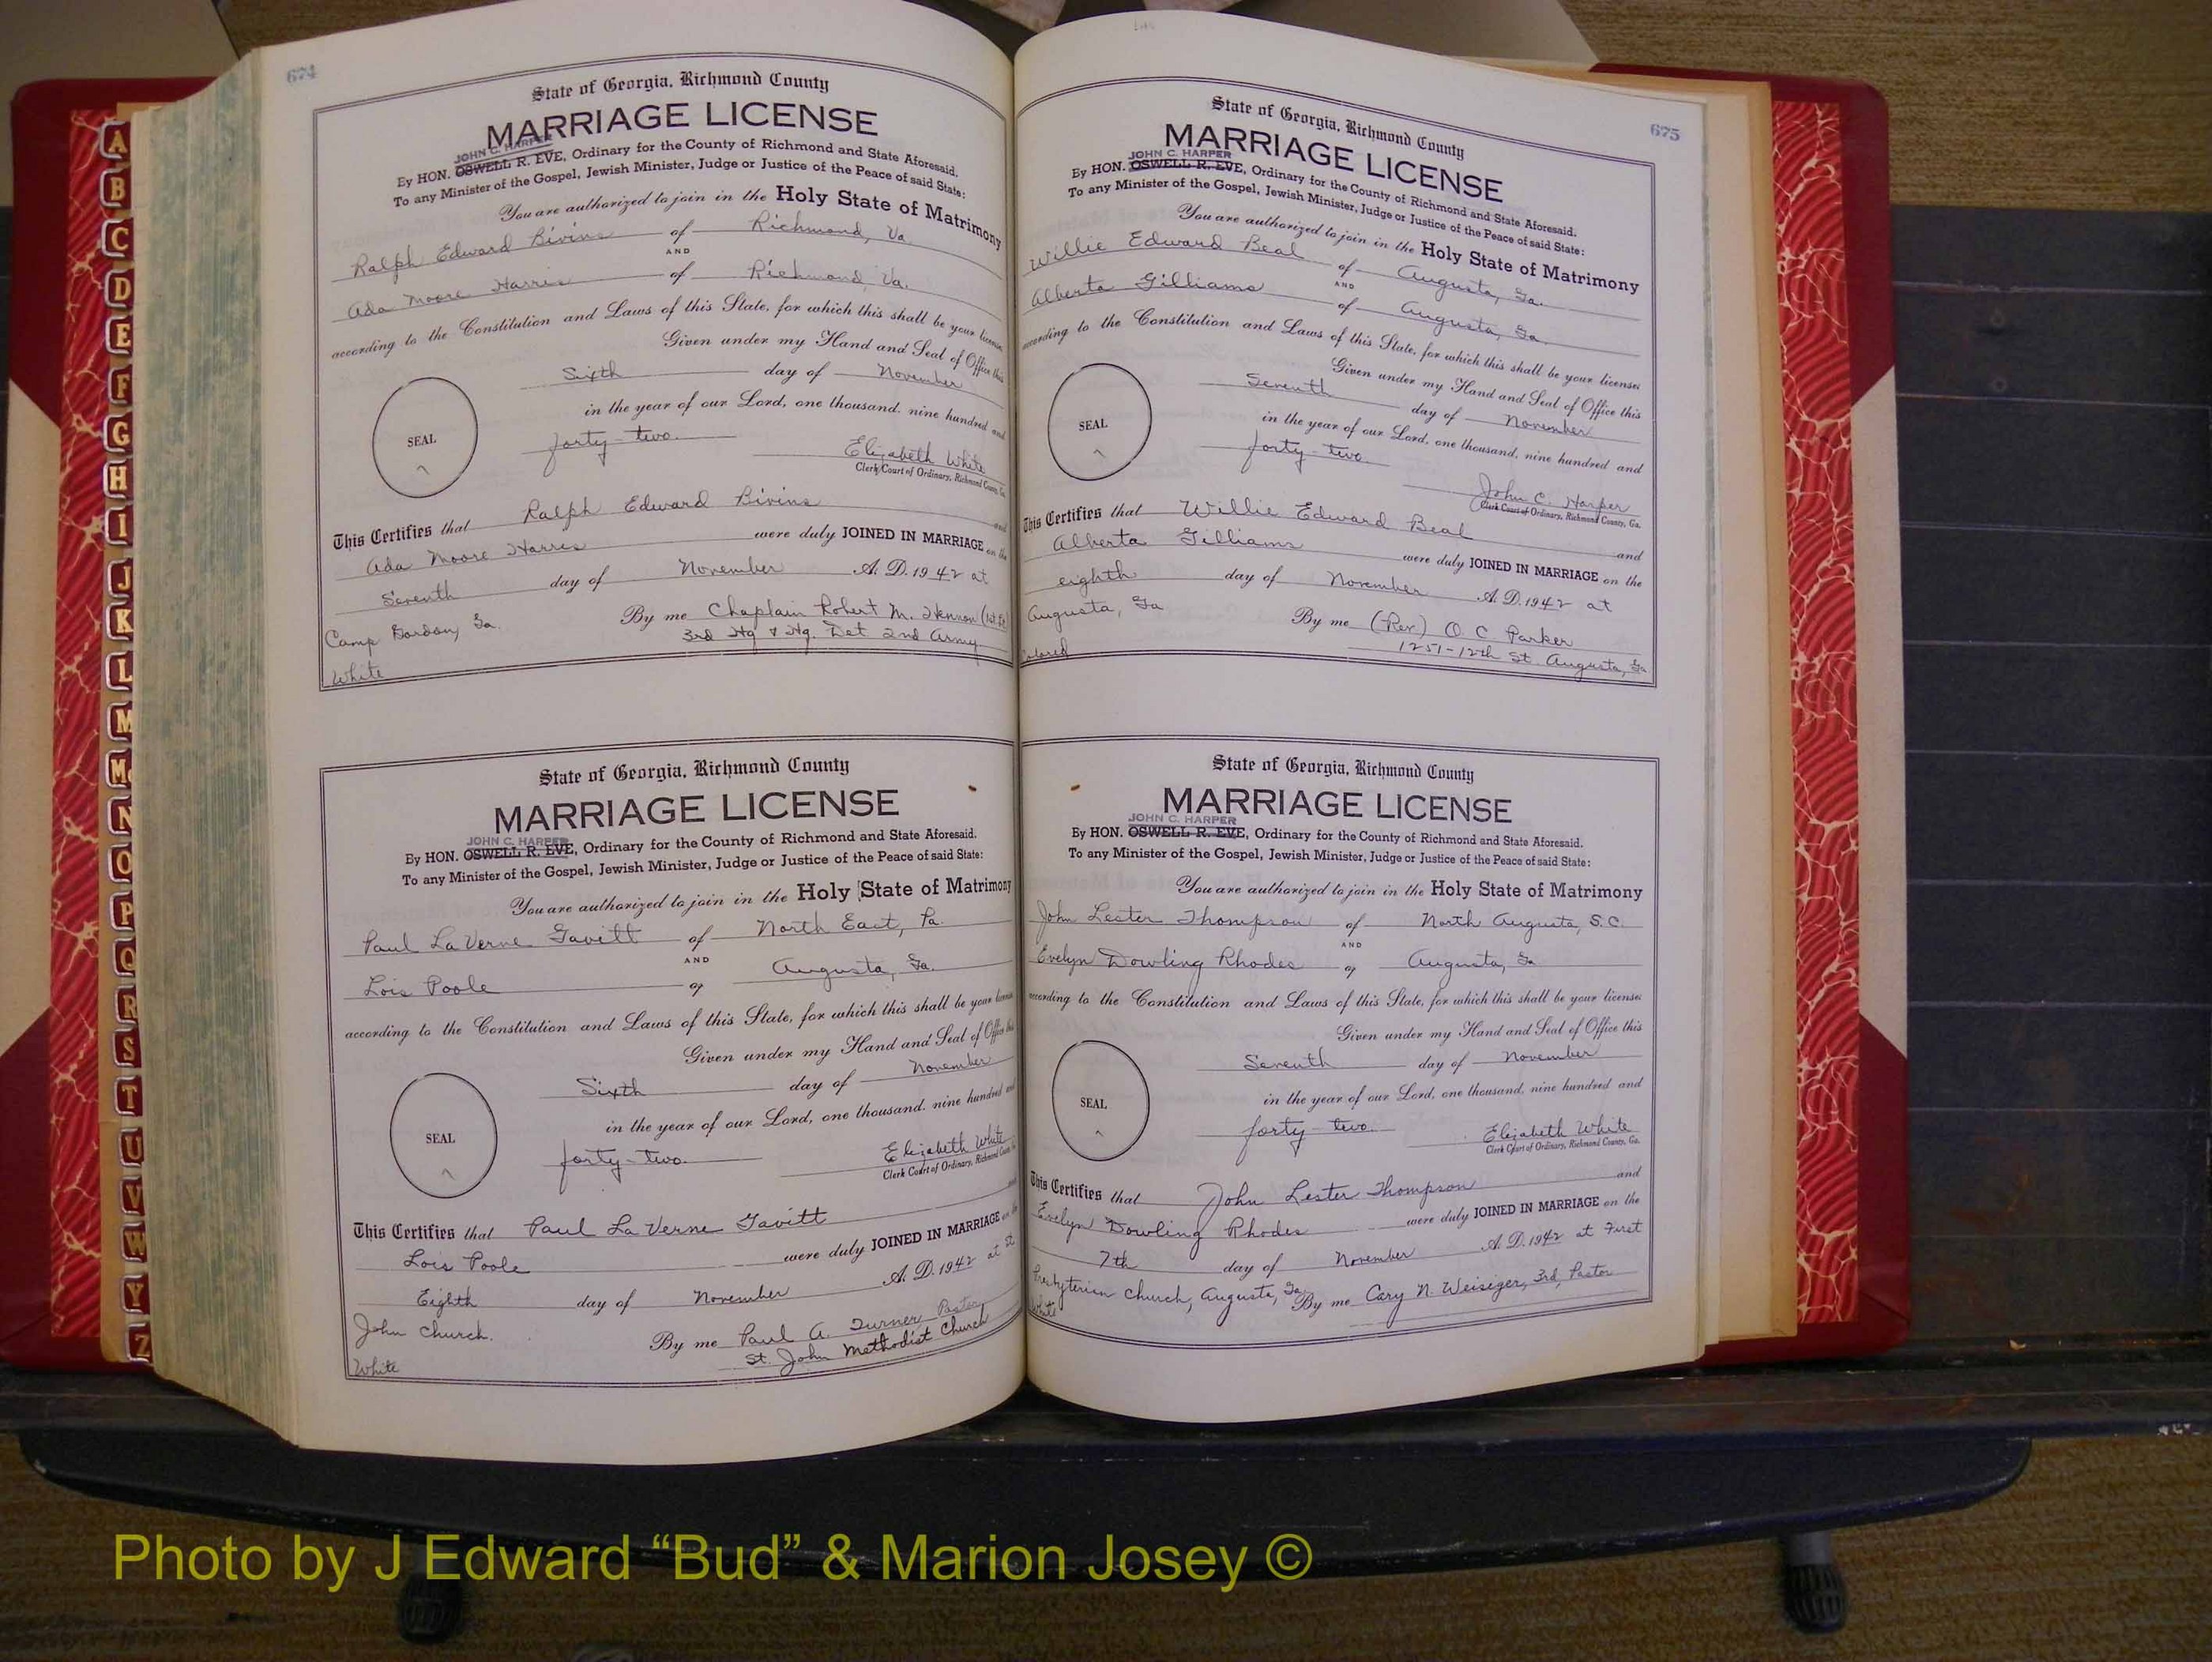 674
State of Georgia, Richmond County
MARRIAGE LICENSE
JOHN C. HARPER
By HON. OSWELL R. EVE, Ordinary for the County of Richmond and State Aforesaid.
To any Minister of the Gospel, Jewish Minister, Judge or Justice of the Peace of said State:
You are authorized to join in the Holy State of Matrimony
Ralph Edward Bivins of Richmond, Va.
AND
Ada Moore Harris of Richmond, Va.
according to the Constitution and Laws of this State, for which this shall be your license
Given under my Hand and Seal of Office this
Sixth day of November
in the year of our Lord, one thousand, nine hundred and
forty-two.
SEAL
Elizabeth White
Clerk Court of Ordinary, Richmond County, Ga.
This Certifies that Ralph Edward Bivins and
Ada Moore Harris were duly JOINED IN MARRIAGE on the
Seventh day of November A. D. 1942 at
Camp Gordon, Ga. By me Chaplain Robert M.
3rd Hq & Hq. Det 2nd Army
White
State of Georgia, Richmond County
MARRIAGE LICENSE
JOHN C. HARPER
By HON. OSWELL R. EVE, Ordinary for the County of Richmond and State Aforesaid.
To any Minister of the Gospel, Jewish Minister, Judge or Justice of the Peace of said State:
You are authorized to join in the Holy State of Matrimony
Paul LaVerne Gavitt of North East, Pa.
AND
Lois Poole of Augusta, Ga.
according to the Constitution and Laws of this State, for which this shall be your license
Given under my Hand and Seal of Office this
Sixth day of November
in the year of our Lord, one thousand, nine hundred and
forty-two.
SEAL
Elizabeth White
Clerk Court of Ordinary, Richmond County
This Certifies that Paul La Verne Gavitt
Lois Poole were duly JOINED IN MARRIAGE on the
Eighth day of November A. D. 1942 at St
John Church. By me Paul A. Turner Pastor
St. John Methodist Church
White
675
State of Georgia, Richmond County
MARRIAGE LICENSE
JOHN C. HARPER
By HON. OSWELL R. EVE, Ordinary for the County of Richmond and State Aforesaid.
To any Minister of the Gospel, Jewish Minister, Judge or Justice of the Peace of said State:
You are authorized to join in the Holy State of Matrimony
Willie Edward Beal of Augusta, Ga.
AND
Alberta Gilliams of Augusta, Ga.
according to the Constitution and Laws of this State, for which this shall be your license
Given under my Hand and Seal of Office this
Seventh day of November
in the year of our Lord, one thousand, nine hundred and
forty-two.
SEAL
John C. Harper
Clerk Court of Ordinary, Richmond County, Ga.
This Certifies that Willie Edward Beal and
Alberta Gilliams were duly JOINED IN MARRIAGE on the
eighth day of November A. D. 1942 at
Augusta, Ga By me (Rev) O. C. Parker
1251-12th St. Augusta, Ga.
Colored
State of Georgia, Richmond County
MARRIAGE LICENSE
JOHN C. HARPER
By HON. OSWELL R. EVE, Ordinary for the County of Richmond and State Aforesaid.
To any Minister of the Gospel, Jewish Minister, Judge or Justice of the Peace of said State:
You are authorized to join in the Holy State of Matrimony
John Lester Thompson of North Augusta, S.C.
AND
Evelyn Dowling Rhodes of Augusta, Ga
according to the Constitution and Laws of this State, for which this shall be your license
Given under my Hand and Seal of Office this
Seventh day of November
in the year of our Lord, one thousand, nine hundred and
forty-two.
SEAL
Elizabeth White
Clerk Court of Ordinary, Richmond County, Ga.
This Certifies that John Lester Thompson and
Evelyn Dowling Rhodes were duly JOINED IN MARRIAGE on the
7th day of November A. D. 1942 at First
Presbyterian Church, Augusta, Ga. By me Cary N. Weisiger, 3rd, Pastor
White
A
B
C
D
E
F
G
H
I
J
K
L
M
Mc
N
O
P
Q
R
S
T
U
V
W
Y
Z
Photo by J Edward “Bud” & Marion Josey ©